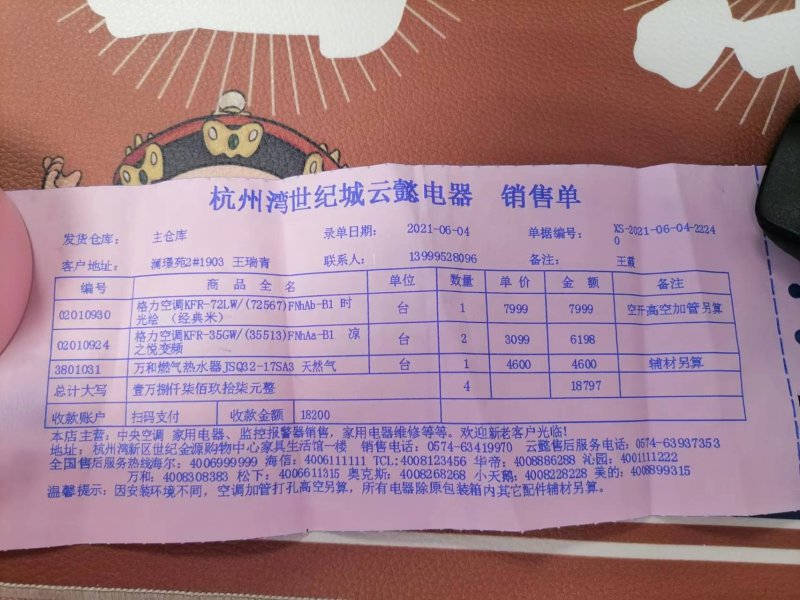 杭州湾世纪城云懿电器 销售单
发货仓库： 主仓库 录单日期： 2021-06-04 单据编号： XS-2021-06-04-22240
客户地址： 澜璟苑2#1903 王瑞青 联系人： 13999528096 备注： 王霞
编号 商品全名 单位 数量 单价 金额 备注
02010930 格力空调KFR-72LW/(72567)FNhAb-B1 时光绘 （经典米） 台 1 7999 7999 空开高空加管另算
02010924 格力空调KFR-35GW/(35513)FNhAa-B1 凉之悦变频 台 2 3099 6198
3801031 万和燃气热水器JSQ32-17SA3 天然气 台 1 4600 4600 辅材另算
总计大写 壹万捌仟柒佰玖拾柒元整 4 18797
收款账户 扫码支付 收款金额 18200
本店主营：中央空调 家用电器、监控报警器销售，家用电器维修等等。欢迎新老客户光临！
地址：杭州湾新区世纪金源购物中心家具生活馆一楼 销售电话：0574-63419970 云懿售后服务电话：0574-63937353
全国售后服务热线海尔：4006999999 海信：4006111111 TCL:4008123456 华帝：4008886288 沁园：4001111222
万和：4008308383 松下：4006611315 奥克斯：4008268268 小天鹅：4008228228 美的：4008899315
温馨提示：因安装环境不同，空调加管打孔高空另算，所有电器除原包装箱内其它配件辅材另算。